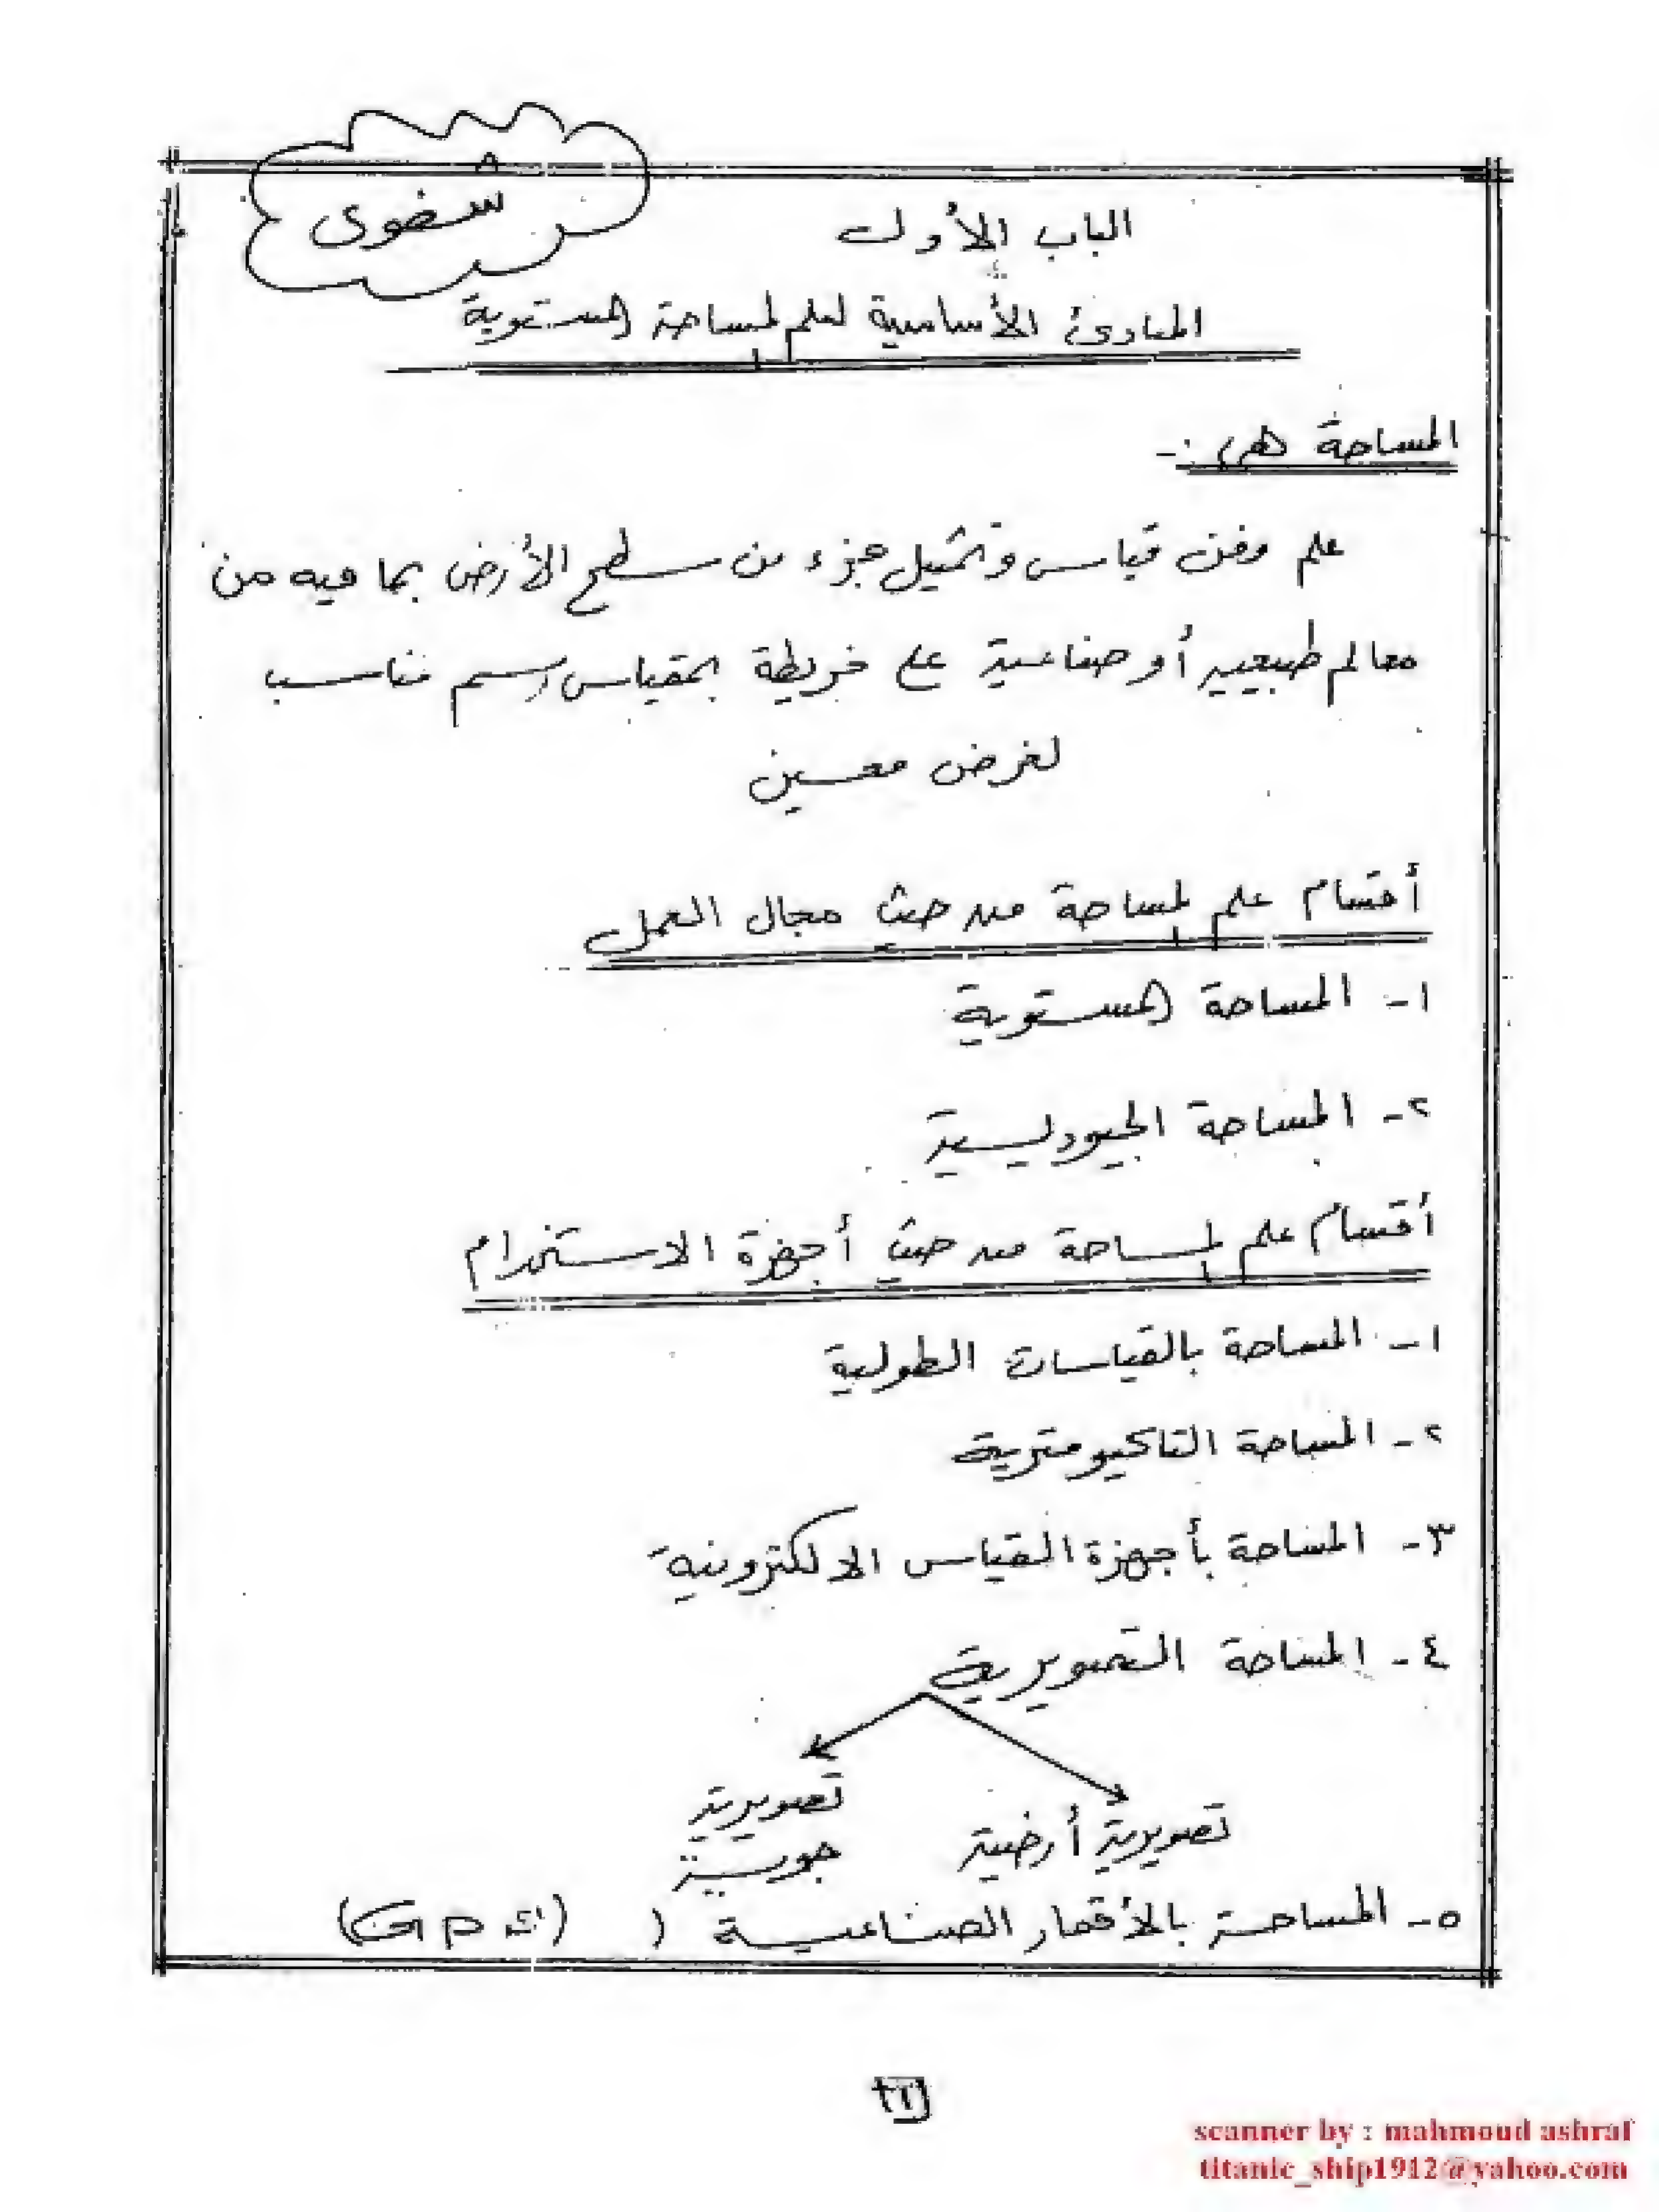 شفوى
الباب الأول
المبادئ الأساسية لعلم المساحة المستوية
المساحة هى :-
علم وفن قياس وتمثيل جزء من سطح الأرض بما فيه من
معالم طبيعيه أو صناعية على خريطة بمقياس رسم مناسب
لغرض معين
أقسام علم المساحة من حيث مجال العمل
١- المساحة المستوية
٢- المساحة الجيوديسية
أقسام علم المساحة من حيث أجهزة الاستخدام
١- المساحة بالقياسات الطولية
٢- المساحة التاكيومترية
٣- المساحة بأجهزة القياس الالكترونية
٤- المساحة التصويرية
تصويرية
جوية
تصويرية أرضية
٥- المساحة بالأقمار الصناعية (
scanner by : mahmoud ashraf
titanic_ship1912@yahoo.com